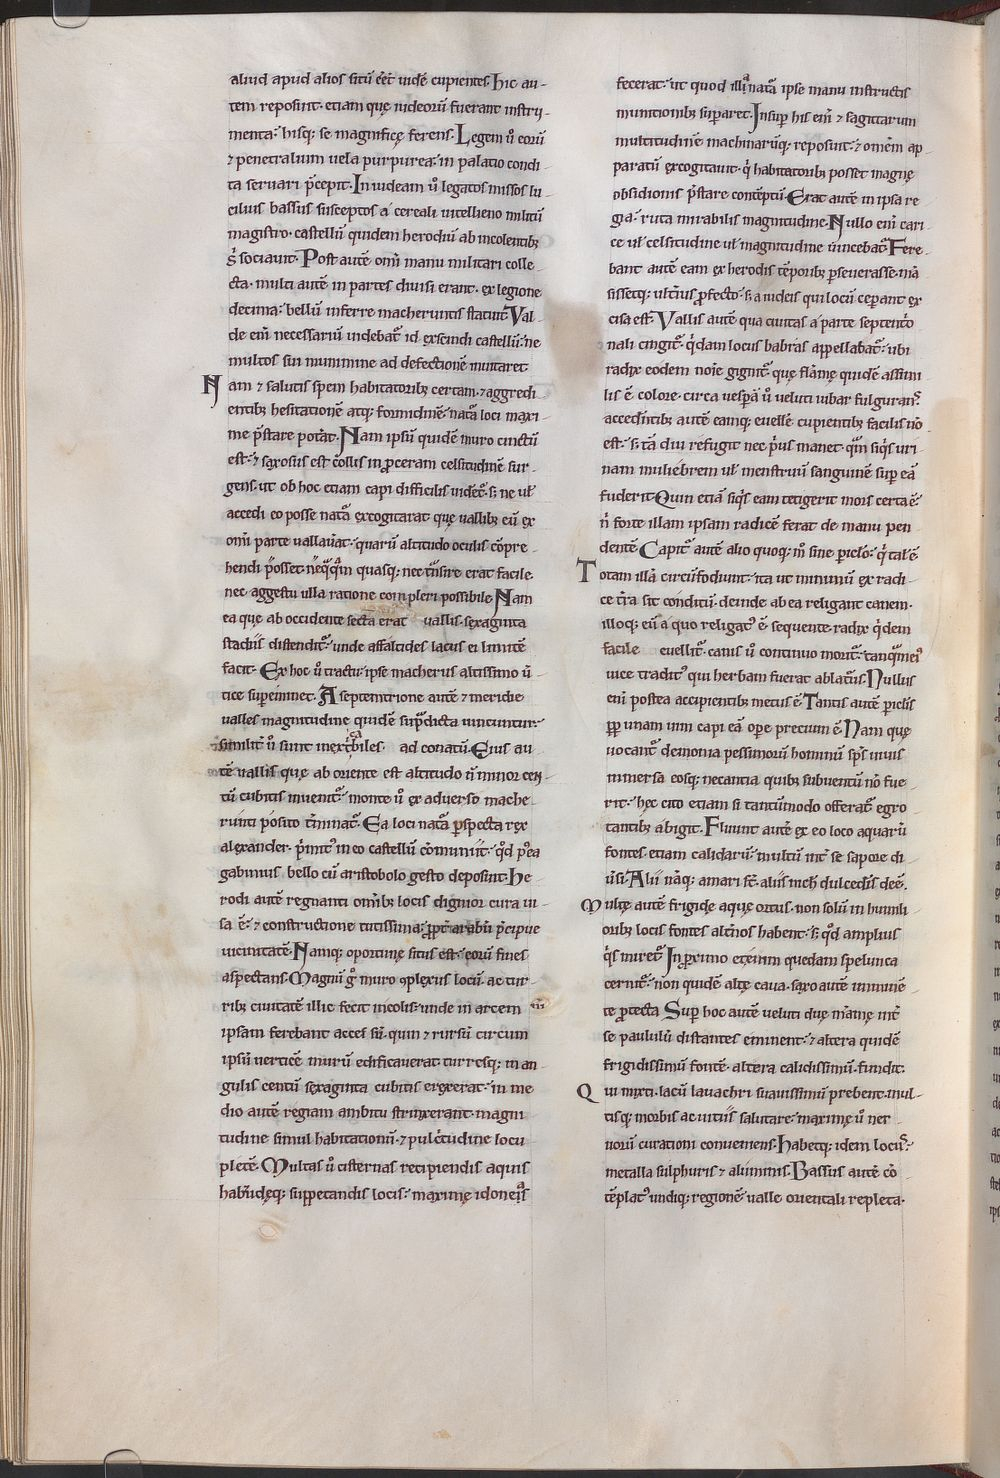 aliud apud alios sitū eēt uidē cupientes. Hic au-
tem reposuit etiam quę iudeorū fuerant instru-
menta. hisq; se magnificę ferens. Legem ů eorū
⁊ penetralium uela purpurea in palatio condi
ta seruari p̄cepit. In iudeam ů legatos missos lu
cilius bassus susceptos a cereali uitellieno militū
magistro. castellū quidem herodiū ab incolentibȝ
sociauit. Post autē om̄i manu militari colle-
cta. multi autē in partes diuisi erant. ex legione
decima. bellū inferre macheruntis statuit. Val-
de eni necessariū uidebat᷑ id exscindi castellū. ne
multos sui munimine ad defectionē inuitaret
Nam ⁊ salutis spem habitatoribȝ certam. ⁊ aggredi
entibȝ hesitationē atq; formidinē. nat̄a loci maxi
me p̄stare potat̄. Nam ipsū quidē muro cinctū
est. ⁊ saxosus est collis in proceram celsitudinē sur-
gens. ut ob hoc etiam capi difficilis uidet᷑. s; ne ul̄
accedi eo posse nat̄a excogitarat. quę uallibȝ eū ex
om̄i parte uallauit. quarū altitudo oculis cōpre-
hendi n̄ posset. neq; quasq; nec t̄nsire erat facile.
nec aggestu ulla ratione compleri possibile. Nam
ea que ab occidente secta erat uallis. sexaginta
stadiis distendit᷑. unde asfaltides lacus ei limitē
facit. Ex hoc ů tractu ipse macherus altissimo ů
tice supeminet. A septemtrione autē ⁊ meridie
ualles magnitudine quidē sup̄dicta uincuntur.
similit̄ ů sunt inext̄cabiles ad conatū. Eius au
tē uallis quę ab oriente est altitudo n̄ minor cen
tū cubitis inuenit᷑. monte ů ex aduerso mache-
runti posito t̄minat᷑. Ea loci nat̄a perspecta rex
alexander. p̄mit᷒ in eo castellū cōmuniit. qd̄ p᷒ea
gabinius bello cū aristobolo gesto deposuit. He-
rodi autē regnanti om̄ibȝ locis dignior cura ui-
sa ē. ⁊ constructione tutissima. ppt̄ arabū p̄cipue
uicinitatē. Namq; oportune situs est. eorū fines
aspectans. Magnū g̊ muro ꝯplexus locū. ac tur-
ribȝ ciuitatē illic fecit incolis. unde in arcem
ipsam ferebant acces sū. quin ⁊ rursū circum
ipsū uerticē murū edificauerat turresq; in an
gulis centū sexaginta cubitis erexerat. in me
dio autē regiam ambitu strinxerant. magni
tudine simul habitationū. ⁊ pulc̄tudine locu
pletē. Multas ů cisternas recipiendis aquis
habūdeq; suppetandis locis. maximę idoneis
fecerat. ut quod illi nat̄a ipse manu instructis
munitionibȝ suparet. Insup his eni ⁊ sagittarum
multitudinē machinarūq; reposuit. ⁊ omēm ap-
paratū excogitauit. q̇ habitatoribȝ posset magnę
obsidionis p̄stare contēptū. Erat autē in ipsa re
gia. ruta mirabilis magnitudine. Nullo eni cari-
ce ul̄ celsitudine ul̄ magnitudine uincebat᷑. Fere-
bant autē eam ex herodis tēporibȝ p̱seuerasse. mā
sissetq; ult̄ius profecto. s; a iudeis qui locū ceperant ex
cisa est. Vallis autē qua ciuitas a parte septent̊o
nali cingit᷑. q̇dam locus babras appellabat᷑. ubi
radix eodem noīe gignit᷑. quę flāmę quidē assimi
lis ē colore. circa uesp̱ā ů ueluti iubar fulgurans.
accedentibȝ autē eamq; euelle cupientibȝ facilis nō
est. s; tā diu refugit nec p̄us manet. qm̄ siq̇s uri-
nam muliebrem ul̄ menstruū sanguinē sup eā
fuderit. Quin etiā siq̇s eam tetigerit mors certa ē.
n̄ forte illam ipsam radicē ferat de manu pen
dentē. Capit᷑ autē alio quoq; m̊ sine piclo. q̇ tal̄ ē
Totam illā circūfodiunt. ita ut minimū ex radi-
ce t̄ra sit conditū. deinde ab ea religant canem.
illoq; eū a quo religat᷒ ē sequente. radix q̇dem
facile euellit᷑. canis ů continuo morit᷑. tanquā ei᷒
uice tradit᷒ qui herbam fuerat ablatur᷒. Nullus
eni postea accipientibȝ metus ē. Tantis autē piclis
pp̱ unam uim capi eā ope precium ē. Nam quę
uocant᷑ demonia pessimorū hominū sp̄s uiuis
immersa eosq; necantia quibȝ subuentū nō fue-
rit. hęc cito etiam si tantūmodo offerat᷑ egro
tantibȝ abigit. Fluunt autē ex eo loco aquarū
fontes. etiam calidarū. multū int̄ se sapore di
ůsi. Alii nāq; amari sc̄. aliis nich̄ dulcedinis deē.
Multę autē frigidę aquę ortus. non solū in humili
oribȝ locis fontes alt̄nos habent. s; qd̄ amplius
q̇s miret᷑. In proximo eteium quedam spelunca
cernit᷑. non quidē altę caua. saxo autē iminē-
te protecta. Sup hoc autē ueluti duę māmę int̄
se paululū distantes eminent. ⁊ altera quidē
frigidissimū fontē. altera calidissimū. fundit.
Qui mixti. lacū lauachri suauissimū prebent. mul-
tisq; morbis ac uitiis salutare. maximę ů ner
uorū curationi conueniens. Habetq; idem locus.
metalla sulphuris ⁊ aluminis. Bassus autē cō
tēplat᷒ undiq; regionē ualle orientali repleta.